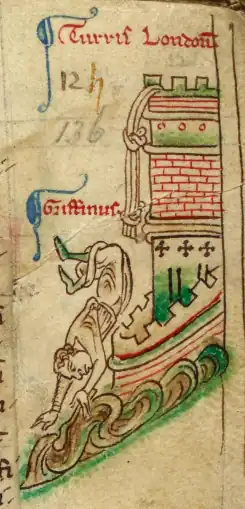 Turris London̄
12h
136
Griffinus.